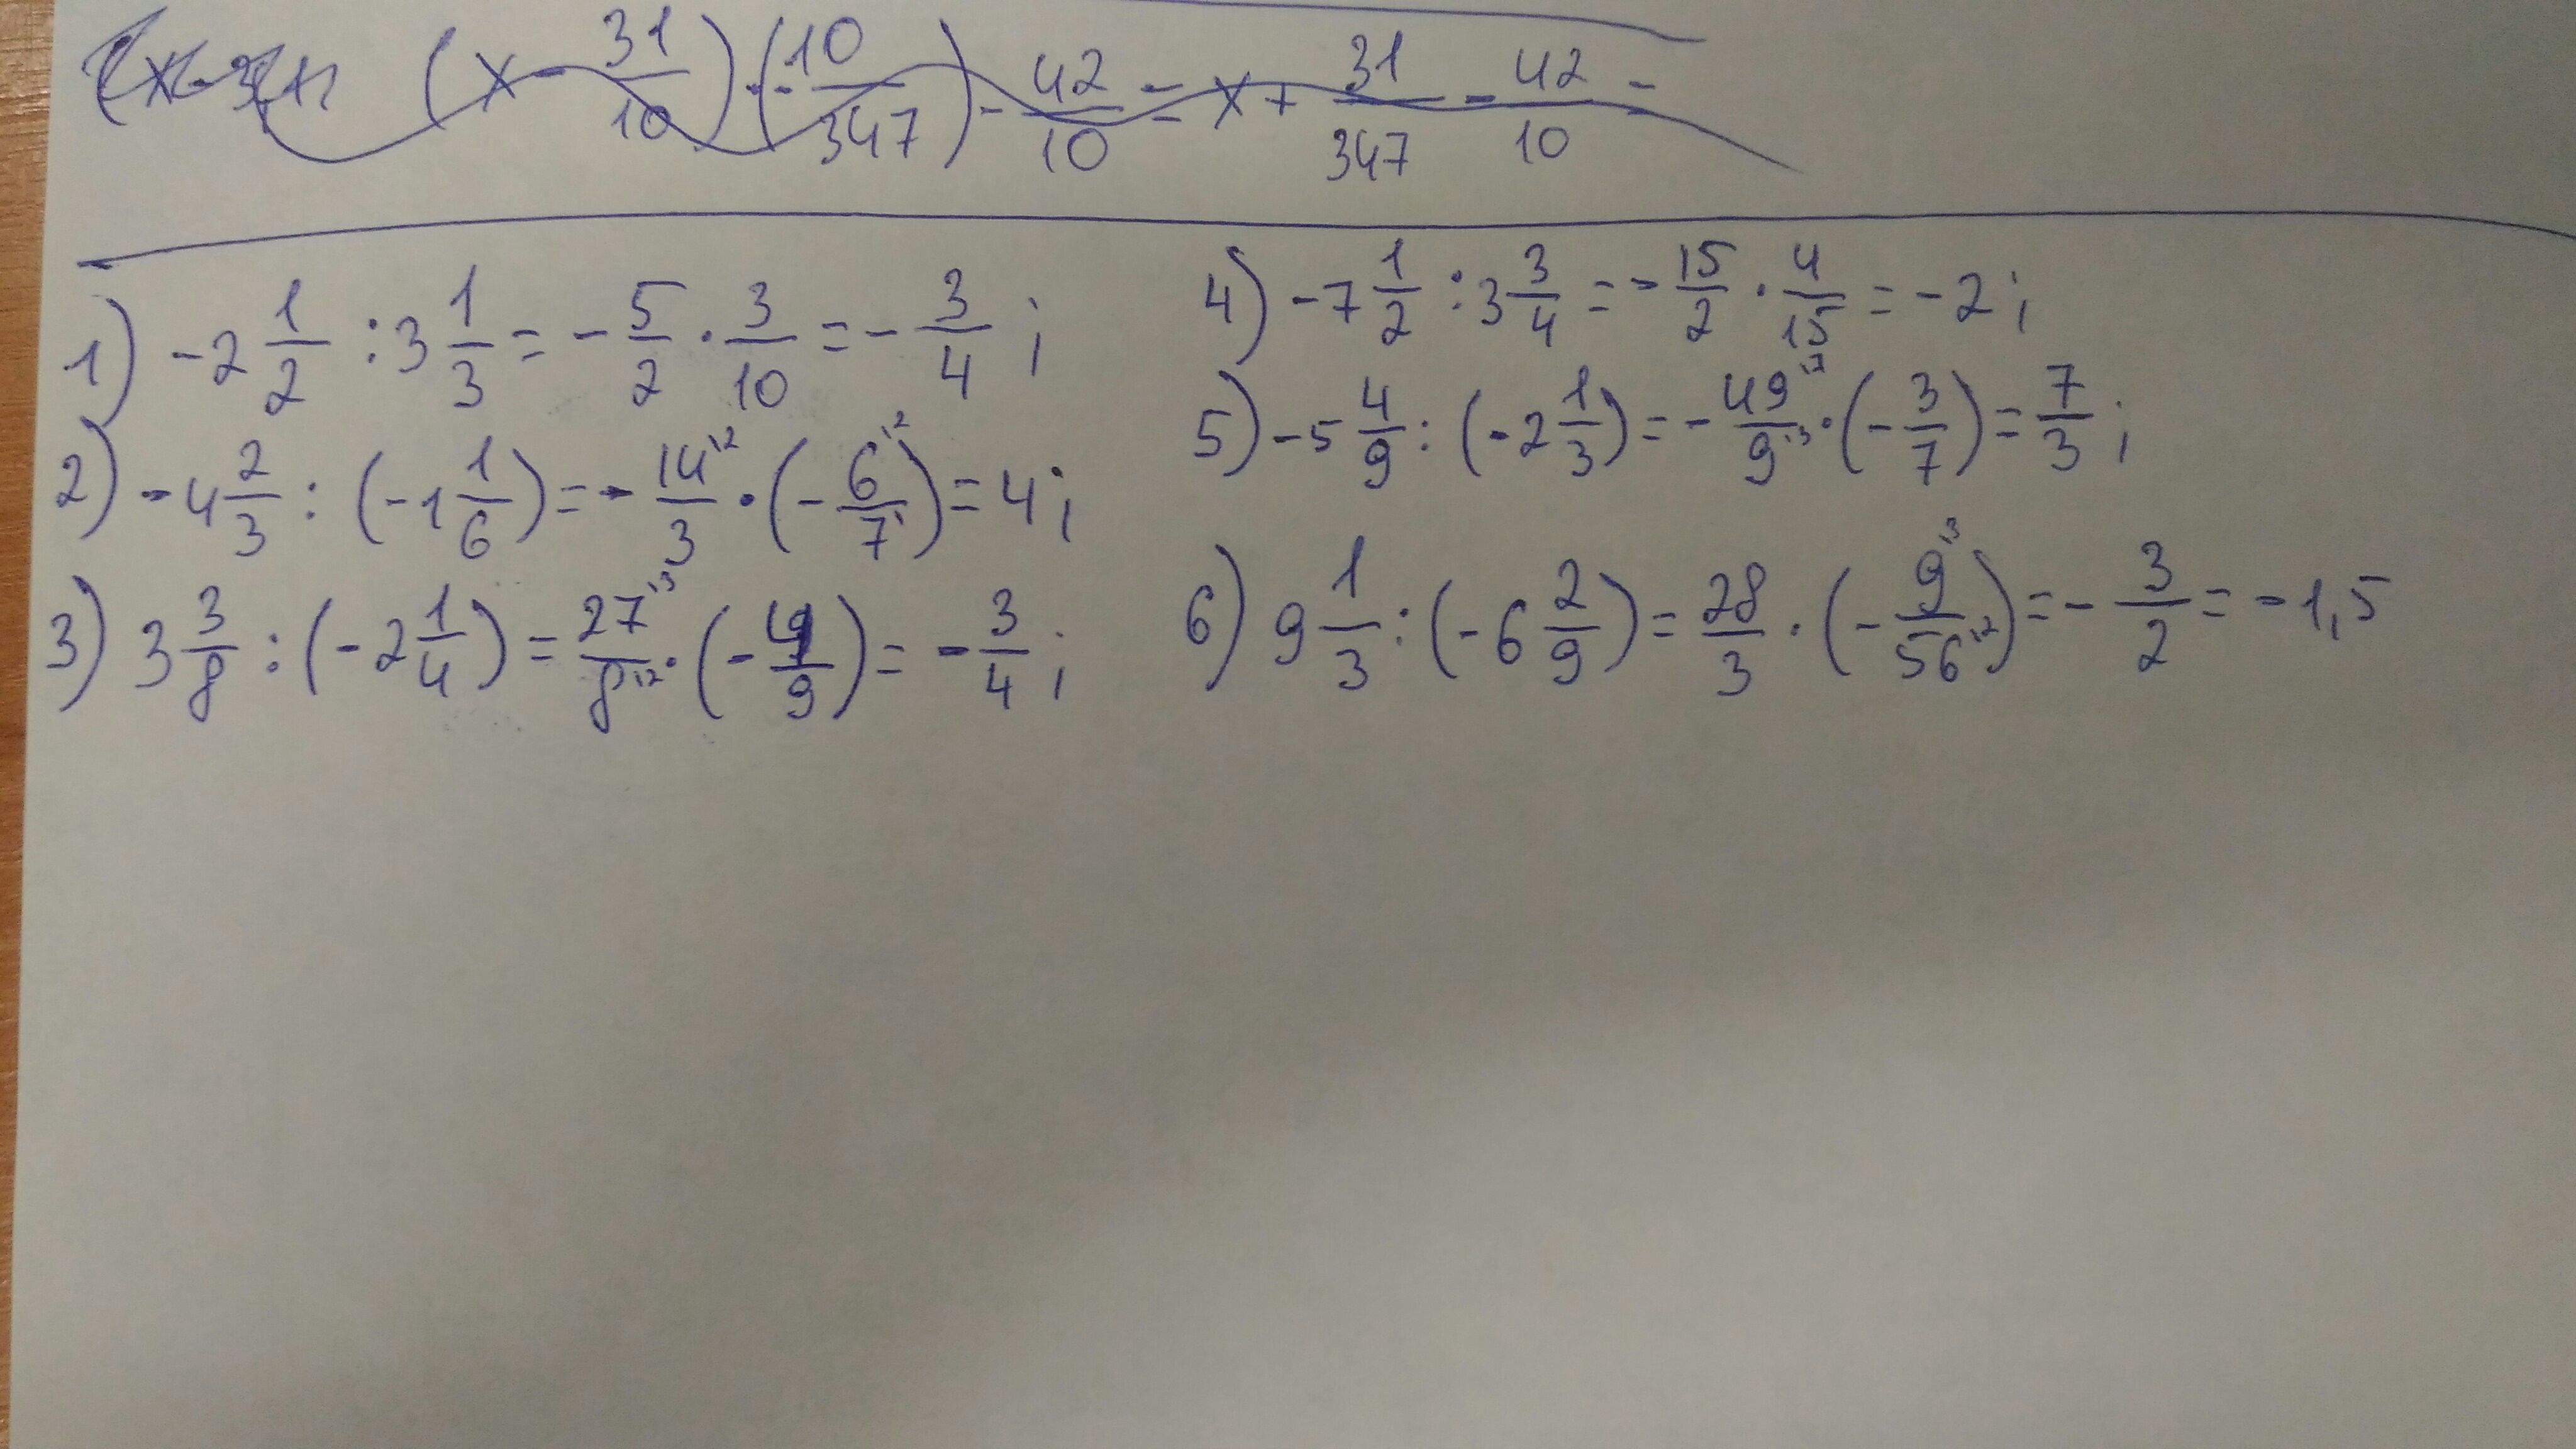 (x - 31/10) · (- 10/347) - 42/10 = x + 31/347 - 42/10 =
1) -2 1/2 : 3 1/3 = - 5/2 · 3/10 = - 3/4 ;
2) -4 2/3 : (-1 1/6) = - 14^2/3 · (- 6^2/7) = 4 ;
3) 3 3/8 : (-2 1/4) = 27^3/8^2 · (- 4/9) = - 3/4 ;
4) -7 1/2 : 3 3/4 = - 15/2 · 4/15 = -2 ;
5) -5 4/9 : (-2 1/3) = - 49^7/9^3 · (- 3/7) = 7/3 ;
6) 9 1/3 : (-6 2/9) = 28/3 · (- 9^3/56^2) = - 3/2 = -1,5